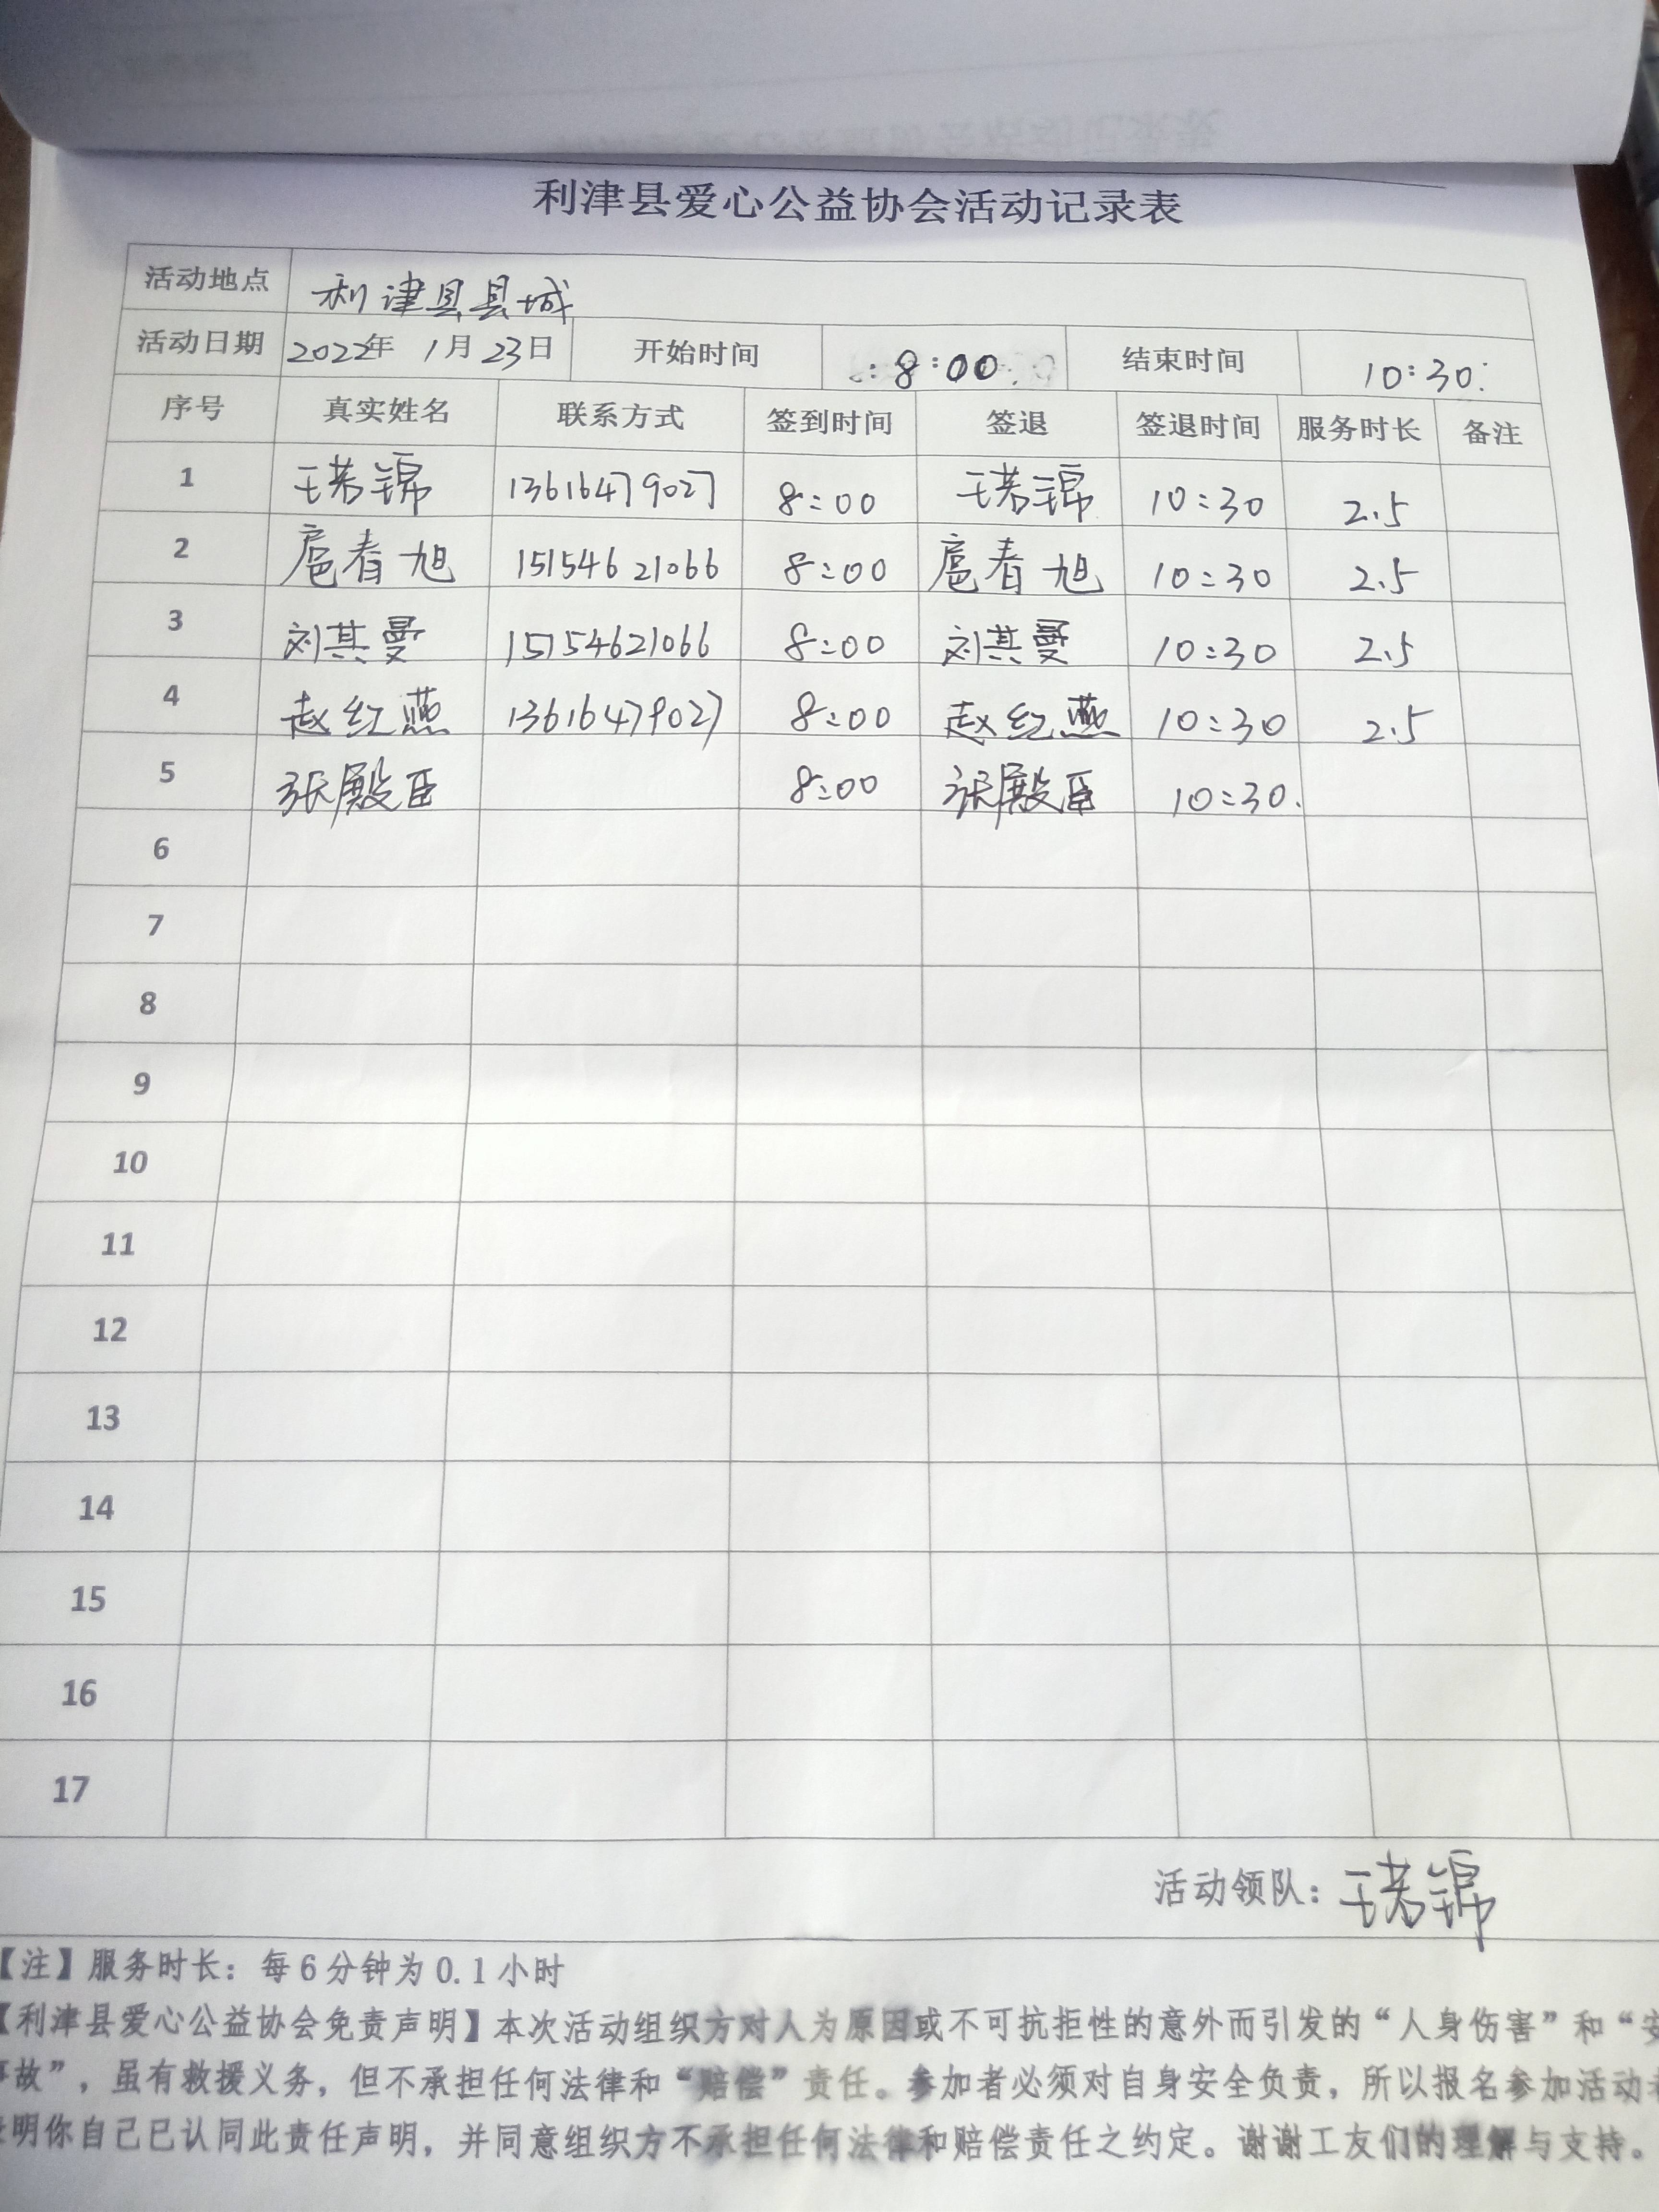 利津县爱心公益协会活动记录表
活动地点 利津县县城
活动日期 2022年 1月 23日 开始时间 8:00 结束时间 10:30
序号 真实姓名 联系方式 签到时间 签退 签退时间 服务时长 备注
1 王若锦 13616479027 8:00 王若锦 10:30 2.5
2 扈春旭 15154621066 8:00 扈春旭 10:30 2.5
3 刘其曼 15154621066 8:00 刘其曼 10:30 2.5
4 赵红燕 13616479027 8:00 赵红燕 10:30 2.5
5 张殿臣 8:00 张殿臣 10:30.
6
7
8
9
10
11
12
13
14
15
16
17
活动领队：王若锦
【注】服务时长：每6分钟为0.1小时
【利津县爱心公益协会免责声明】本次活动组织方对人为原因或不可抗拒性的意外而引发的“人身伤害”和“安
事故”，虽有救援义务，但不承担任何法律和“赔偿”责任。参加者必须对自身安全负责，所以报名参加活动者
明你自己已认同此责任声明，并同意组织方不承担任何法律和赔偿责任之约定。谢谢工友们的理解与支持。